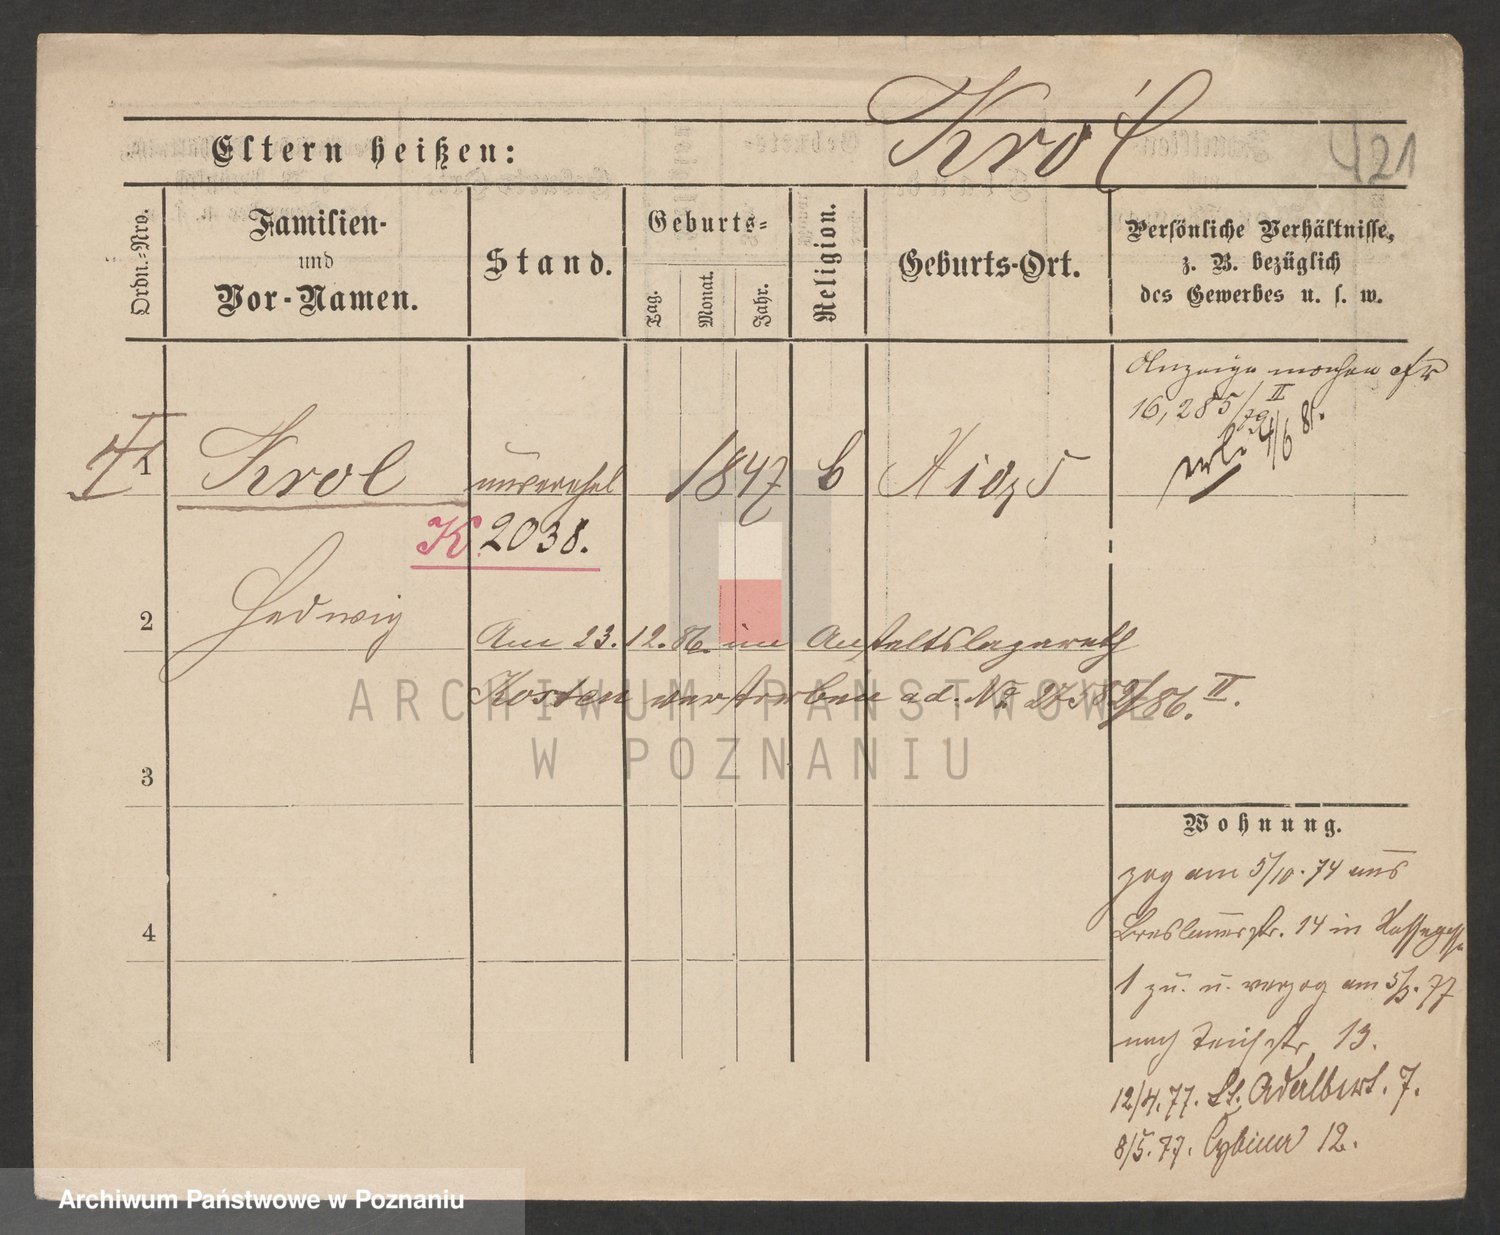 Król
421
Eltern heißen:
Ordn.-Nro.
Familien-
und
Vor-Namen.
Stand.
Geburts-
Tag.
Monat.
Jahr.
Religion.
Geburts-Ort.
Persönliche Verhältnisse,
z. B. bezüglich
des Gewerbes u. s. w.
Anzeige machen
16,285/79 II
24/6 81.
1 Krol unverehel 1847 Xions
K. 2038.
2 Hedwig
Am 23.12.86. im Anstaltslazareth
Kosten verstorben ad. No 27582/86. II.
3
4
Wohnung.
zog am 5/10. 74 aus
Breslauerstr. 14 in
1 zu. u. verzog am 5/3. 77
nach Teichstr. 13.
12/4. 77. St. Adalbert. 7.
8/5. 77. Cybina 12.
ARCHIWUM PAŃSTWOWE
W POZNANIU
Archiwum Państwowe w Poznaniu